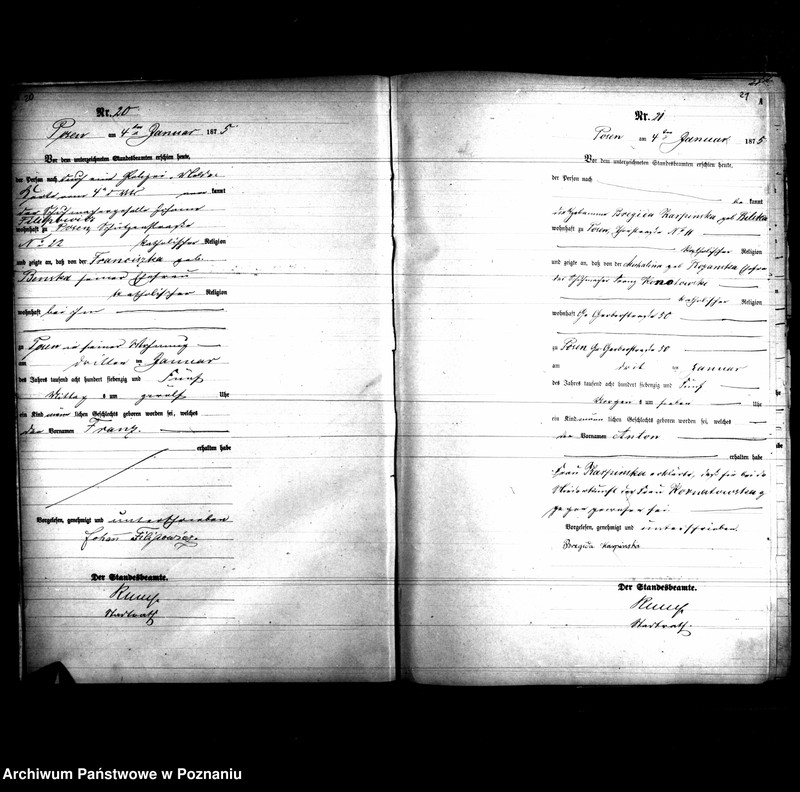 20
Nr. 20
Posen am 4ten Januar 1875
Vor dem unterzeichneten Standesbeamten erschien heute,
der Person nach durch eine Polizei-Melde
Karte vom 4 kannt
der Schuhmachergeselle Johann
Filipowicz
wohnhaft zu Posen, Schützenstraße
No 22 katholischer Religion
und zeigte an, daß von der Franciszka geb.
Benska seiner Ehefrau
katholischer Religion
wohnhaft bei ihm
zu Posen in seiner Wohnung
am dritten Januar
des Jahres tausend acht hundert siebenzig und Fünf
Mittag s um zwölf Uhr
ein Kind männlichen Geschlechts geboren worden sei, welches
den Vornamen Franz.
erhalten habe
Vorgelesen, genehmigt und unterschrieben
Johan Filipowicz.
Der Standesbeamte.
Stadtrath
21
A
Nr. 21
Posen am 4ten Januar 1875
Vor dem unterzeichneten Standesbeamten erschien heute,
der Person nach
be kannt
die Hebamme Bregida Karpinska geb Bilska
wohnhaft zu Posen, No 11
katholischer Religion
und zeigte an, daß von der Michalina geb Rozanska Ehefrau
des Schuhmacher Franz Kornatowski
katholischer Religion
wohnhaft Gr Gerberstraße 38
zu Posen Gr. Gerberstraße 38
am dritten Januar
des Jahres tausend acht hundert siebenzig und Fünf
Morgen s um sieben Uhr
ein Kind männlichen Geschlechts geboren worden sei, welches
den Vornamen Anton
erhalten habe
Frau Karpinska erklärte, daß sie bei der
Niederkunft der Frau Kornatowska zu-
gegen gewesen sei.
Vorgelesen, genehmigt und unterschrieben.
Bregida Karpinska
Der Standesbeamte.
Stadtrath.
Archiwum Państwowe w Poznaniu